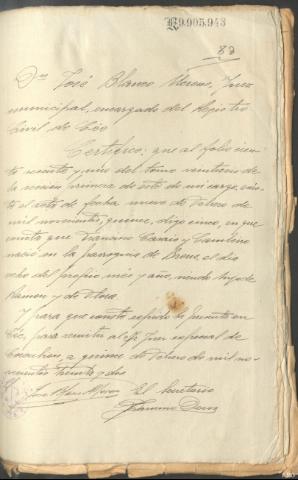 R9.905.943
82
Don José Blanco Moreno, Juez
municipal, encargado del Registro
Civil de Cée
Certifico: que al folio cien-
to sesenta y uno del tomo veintiuno de
la sección primera de este de mi cargo, cons-
ta el acta de fecha nueve de Febrero de
mil novecientos quince, digo cinco, en que
consta que
nació en la parroquia de Brens el día
ocho del propio mes y año, siendo hijo de
Ramon y de Flora.
Y para que conste expido la presente en
Cée, para remitir al Sr. Juez especial de
Corcubion, a quince de Febrero de mil no-
vecientos treinta y dos
José Blanco El Secretario